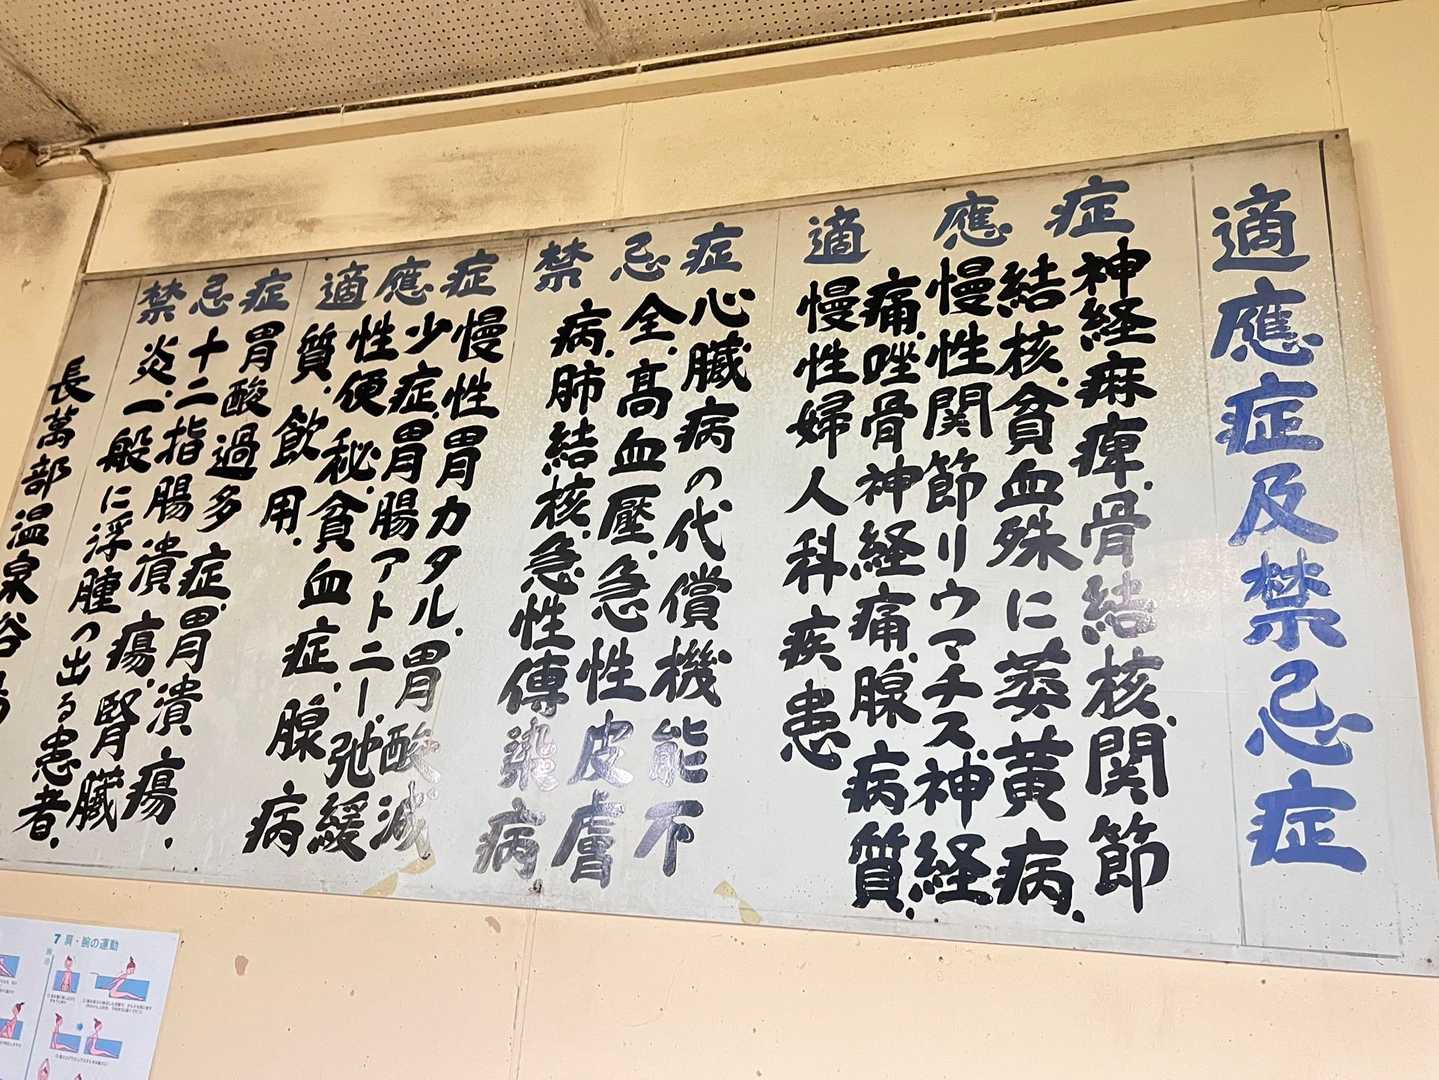 適應症及禁忌症
適應症
神経麻痺.骨結核.関節
結核.貧血殊に萎黄病.
慢性関節リウマチス.神経
痛.唑骨神経痛.腺病質.
慢性婦人科疾患
禁忌症
心臓病の代償機能不
全.高血壓.急性皮膚
病.肺結核.急性傳染病
適應症
慢性胃カタル.胃酸減
少症.胃腸アトニー.弛緩
性便秘.貧血症.腺病
質.飲用.
禁忌症
胃酸過多症.胃潰瘍.
十二指腸潰瘍.腎臓
炎.一般に浮腫の出る患者.
長萬部温泉
7 肩・腕の運動